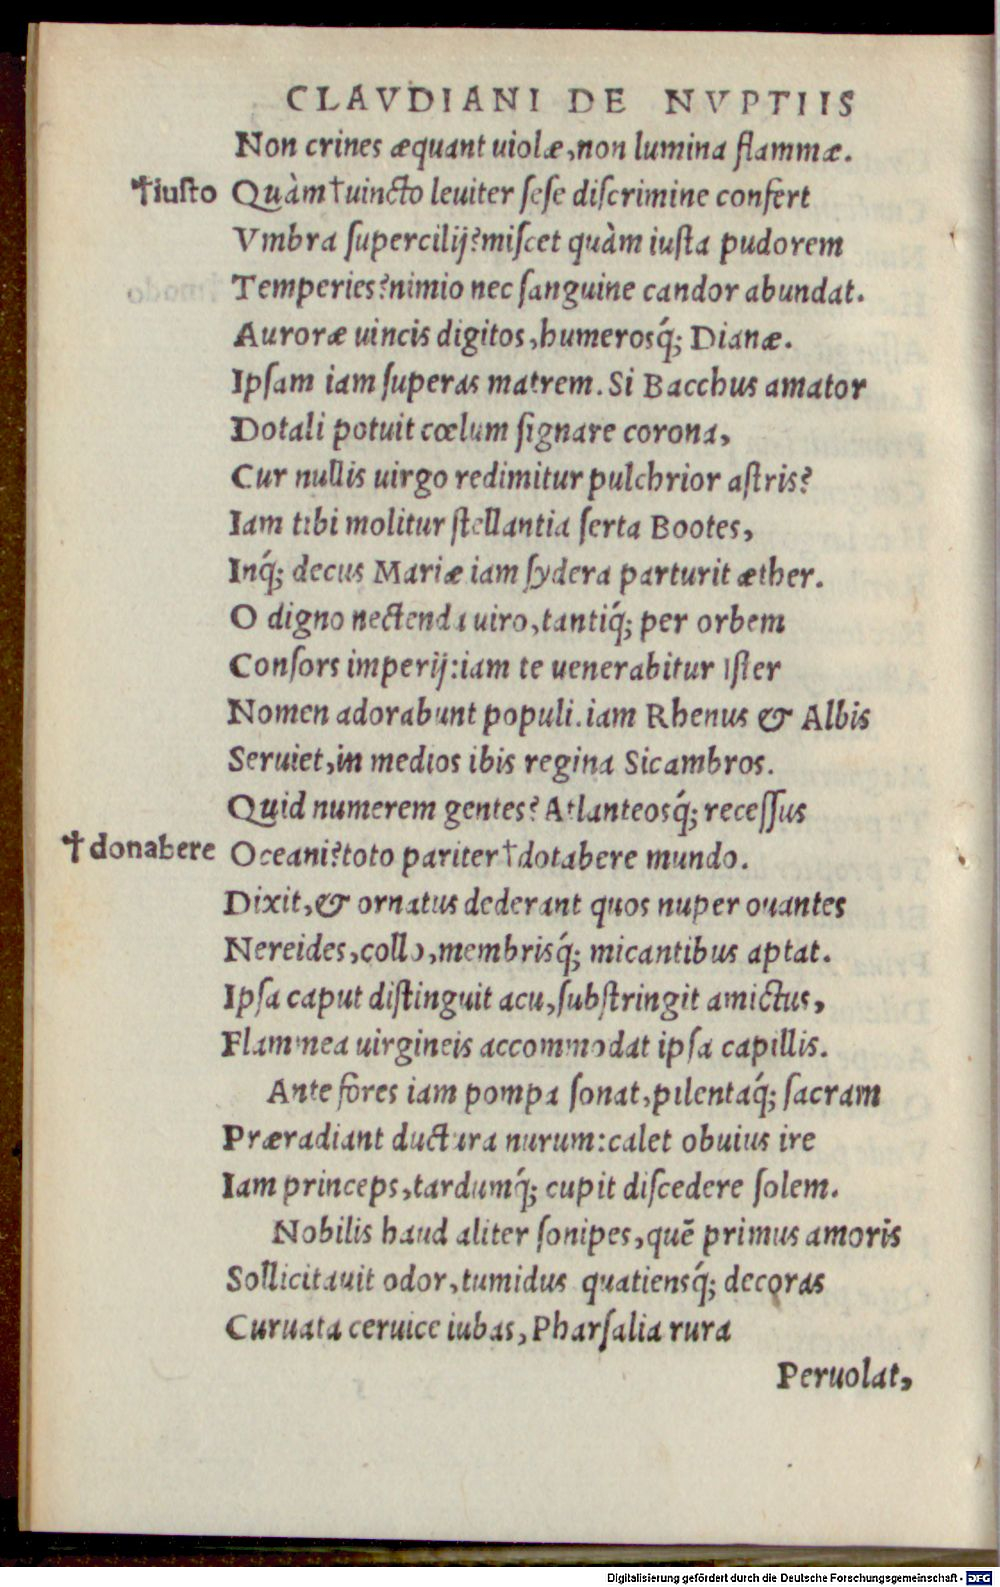 CLAVDIANI DE NVPTIIS
Non crines æquant uiolæ, non lumina flammæ.
†iusto Quàm †uincto leuiter sese discrimine confert
Vmbra supercilij? miscet quàm iusta pudorem
Temperies? nimio nec sanguine candor abundat.
Auroræ uincis digitos, humerosq́; Dianæ.
Ipsam iam superas matrem. Si Bacchus amator
Dotali potuit cœlum signare corona,
Cur nullis uirgo redimitur pulchrior astris?
Iam tibi molitur stellantia serta Bootes,
Inq́; decus Mariæ iam sydera parturit æther.
O digno nectenda uiro, tantiq́; per orbem
Consors imperij: iam te uenerabitur Ister
Nomen adorabunt populi. iam Rhenus & Albis
Seruiet, in medios ibis regina Sicambros.
Quid numerem gentes? Atlanteosq́; recessus
†donabere Oceani? toto pariter †dotabere mundo.
Dixit, & ornatus dederant quos nuper ouantes
Nereides, collo, membrisq́; micantibus aptat.
Ipsa caput distinguit acu, substringit amictus,
Flammea uirgineis accommodat ipsa capillis.
Ante fores iam pompa sonat, pilentaq́; sacram
Præradiant ductura nurum: calet obuius ire
Iam princeps, tardumq́; cupit discedere solem.
Nobilis haud aliter sonipes, quẽ primus amoris
Sollicitauit odor, tumidus quatiensq́; decoras
Curuata ceruice iubas, Pharsalia rura
Peruolat,
Digitalisierung gefördert durch die Deutsche Forschungsgemeinschaft - DFG